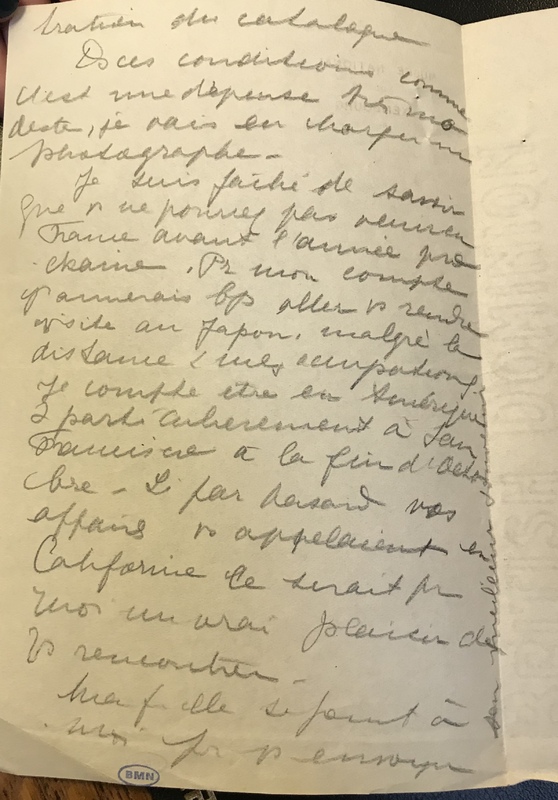 tration du catalogue
Ds ces conditions comme
c'est une dépense pr mo
deste, je vais en charger un
photographe -
Je suis fâché de savoir
que vs ne pourrez pas venir en
France avant l'année pro
chaine. Pr mon compte
j'aimerais bp aller vs rendre
visite au Japon, malgré la
distance & mes occupations.
Je compte etre en Amérique
& particulierement à San
Francisco à la fin d'Octo
bre - Si par hasard vos
affaires vs appelaient en
Californie ce serait pr
moi un vrai plaisir de
Vs rencontrer -
Ma fille se joint à
moi pr vs envoyer
son meilleur
BMN